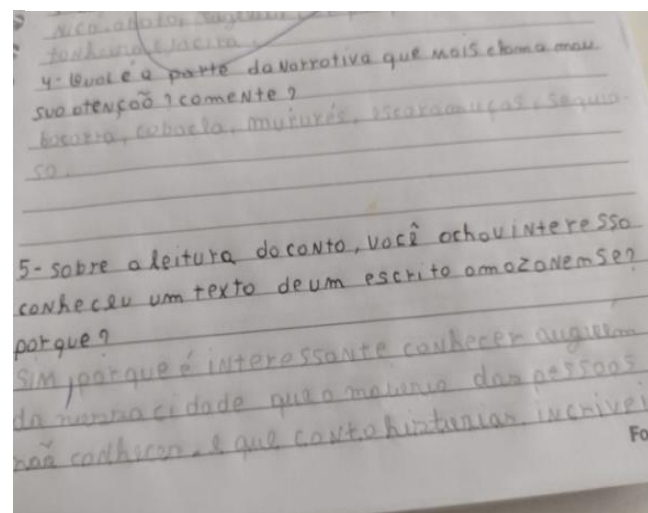 Nico,
4- Qual é a parte da Narrativa que mais chama mau
sua atençoõ? comeNte?
cobocla, mururés, escaramuças, sequio
so.
5- sobre a leitura do coNto, você achou iNteresso
coNheceu um texto de um escrito amazoNemse?
porque?
SIM, porque é iNteressaNte coNhecer auguem
da nossa cidade que a maioria das pessoas
não conhecem, e que coNta histurias iNcrivei
Fo